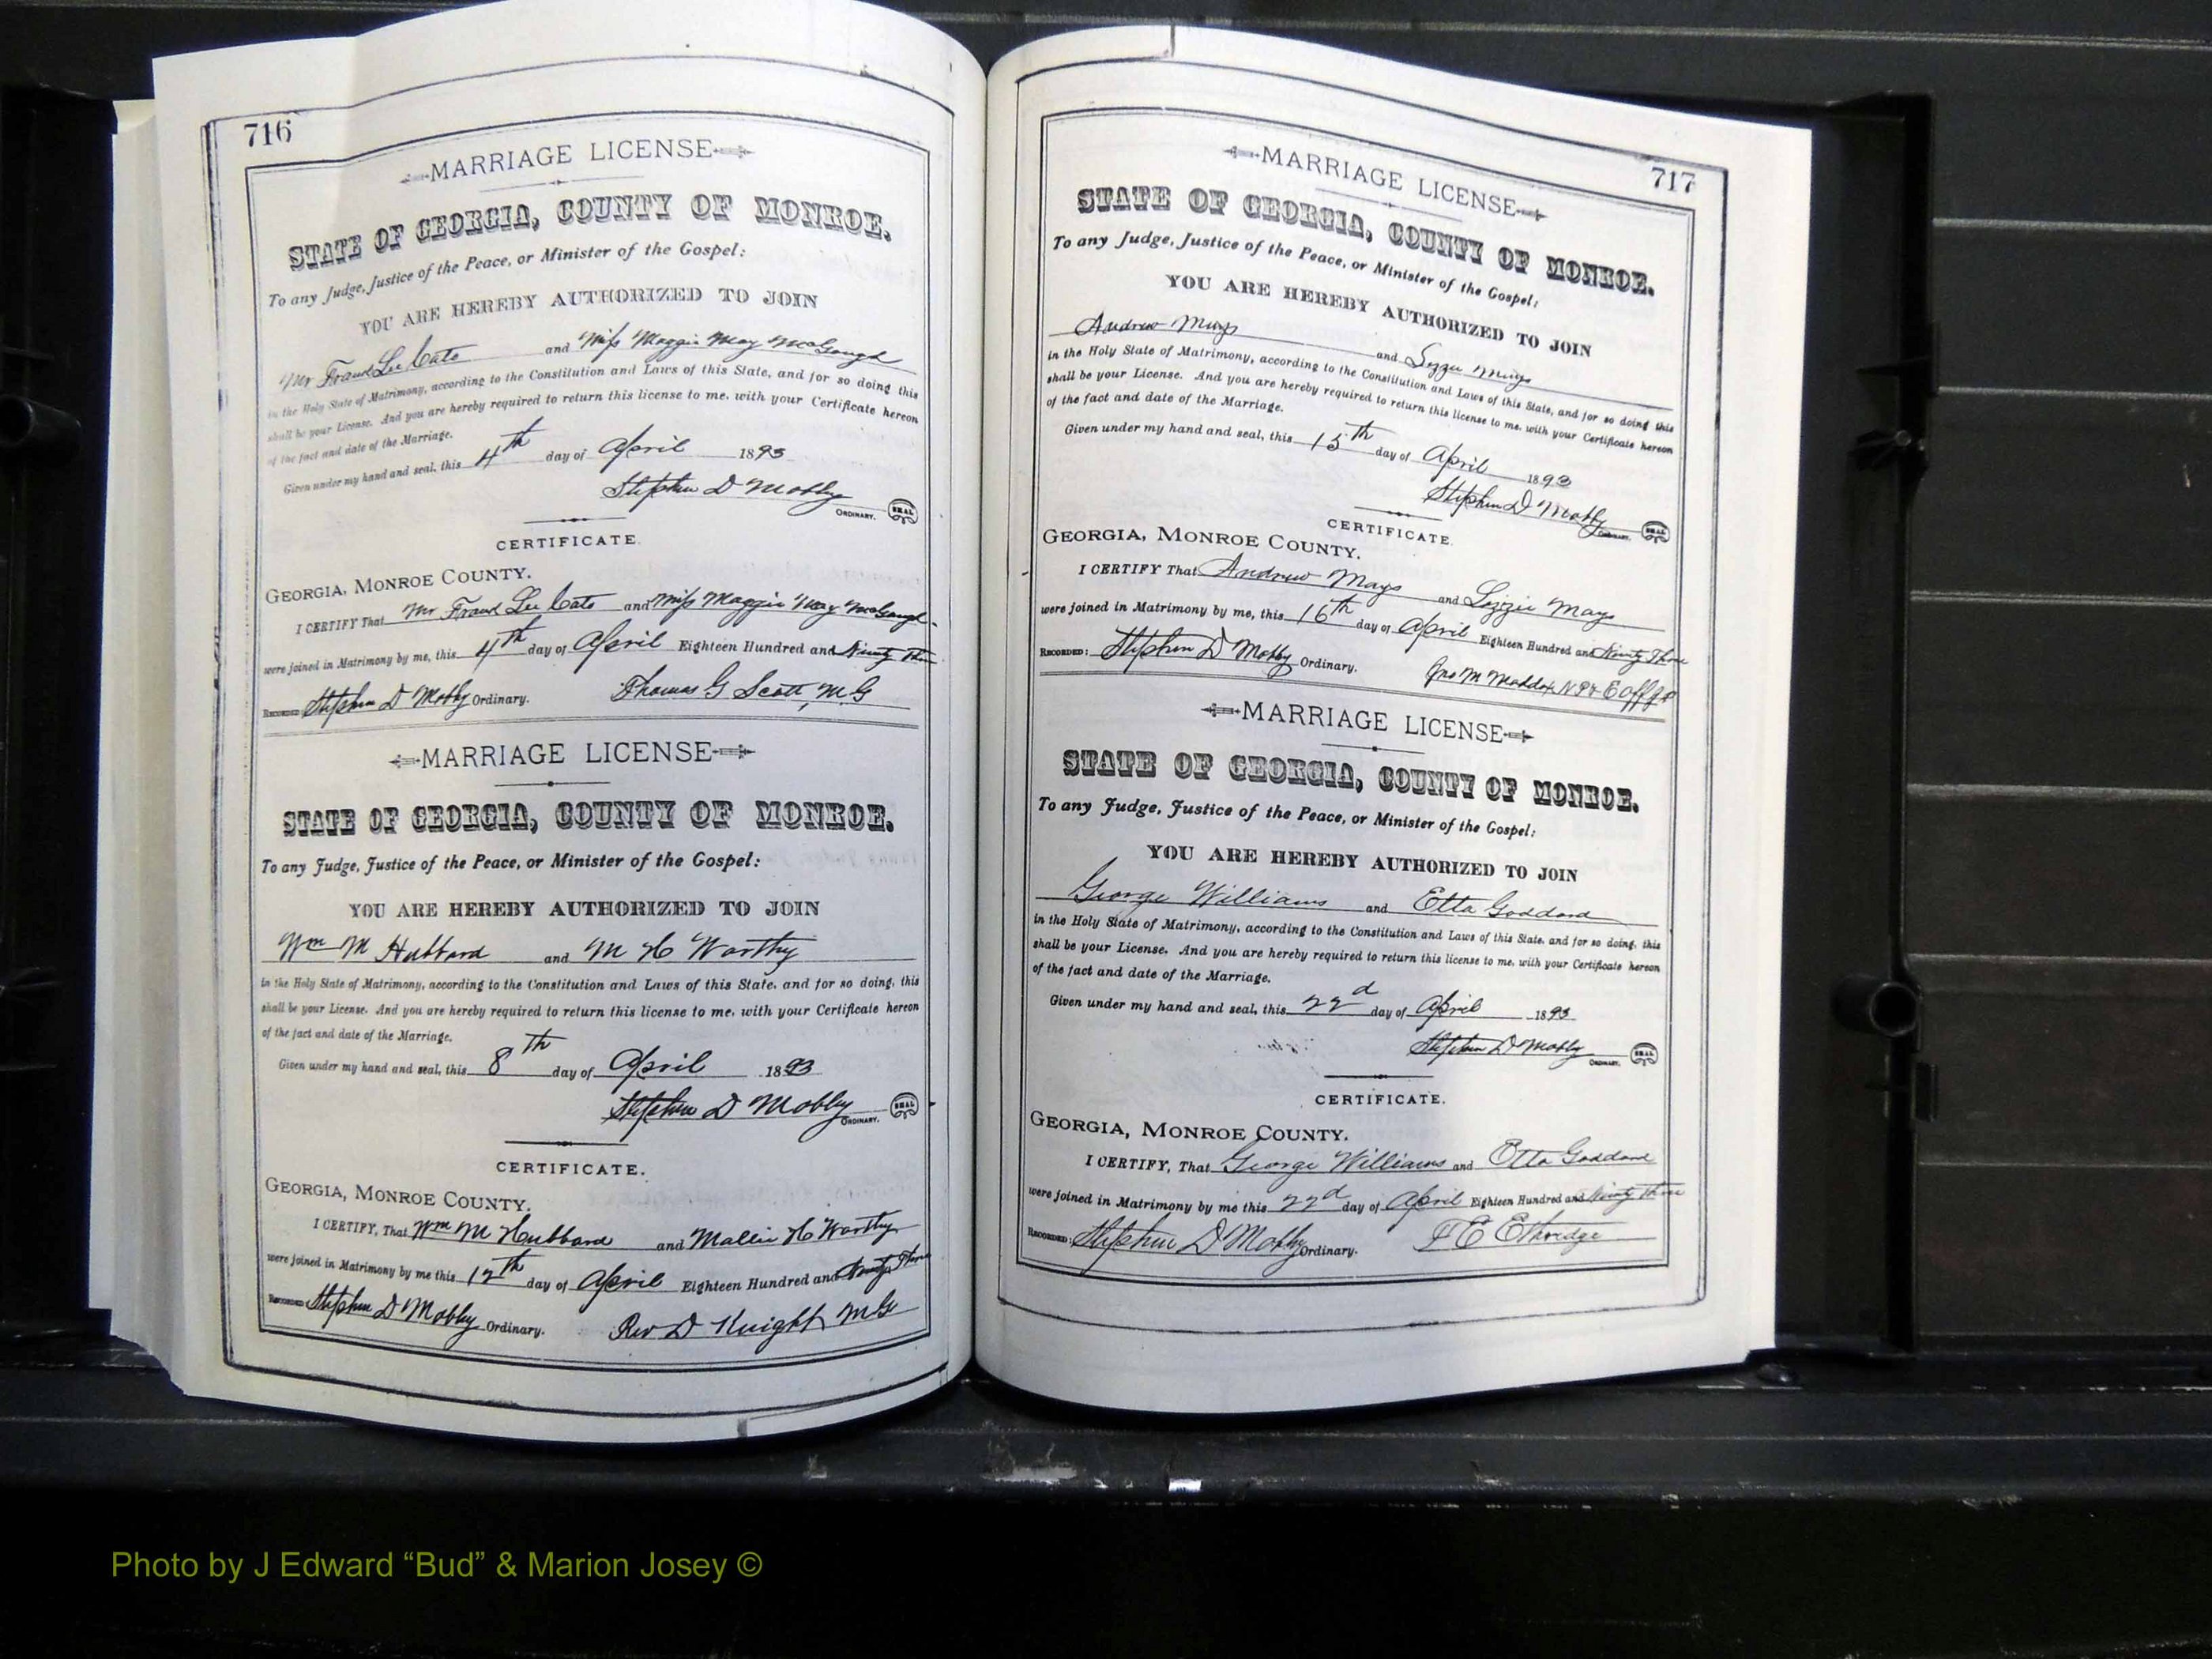 716
MARRIAGE LICENSE
STATE OF GEORGIA, COUNTY OF MONROE.
To any Judge, Justice of the Peace, or Minister of the Gospel:
YOU ARE HEREBY AUTHORIZED TO JOIN
Mr Lee Cato and Miss Maggie May McGough
in the Holy State of Matrimony, according to the Constitution and Laws of this State, and for so doing this
shall be your License. And you are hereby required to return this license to me, with your Certificate hereon
of the fact and date of the Marriage.
Given under my hand and seal, this 4th day of April 1893
Stephen D Mobley
ORDINARY. SEAL
CERTIFICATE.
GEORGIA, MONROE COUNTY.
I CERTIFY That Mr Lee Cato and Miss Maggie May McGough
were joined in Matrimony by me, this 4th day of April Eighteen Hundred and Ninety Three
RECORDED: Stephen D Mobley Ordinary. Thomas G Scott, M.G
MARRIAGE LICENSE
STATE OF GEORGIA, COUNTY OF MONROE.
To any Judge, Justice of the Peace, or Minister of the Gospel:
YOU ARE HEREBY AUTHORIZED TO JOIN
Wm M Hubbard and M H Worthy
in the Holy State of Matrimony, according to the Constitution and Laws of this State, and for so doing, this
shall be your License. And you are hereby required to return this license to me, with your Certificate hereon
of the fact and date of the Marriage.
Given under my hand and seal, this 8th day of April 1893
Stephen D Mobley
ORDINARY. SEAL
CERTIFICATE.
GEORGIA, MONROE COUNTY.
I CERTIFY, That Wm M Hubbard and Mallie H Worthy
were joined in Matrimony by me this 12th day of April Eighteen Hundred and Ninety Three
RECORDED: Stephen D Mobley Ordinary. Rev D Knight MG
717
MARRIAGE LICENSE
STATE OF GEORGIA, COUNTY OF MONROE.
To any Judge, Justice of the Peace, or Minister of the Gospel:
YOU ARE HEREBY AUTHORIZED TO JOIN
Andrew Mays and Lizzie Mays
in the Holy State of Matrimony, according to the Constitution and Laws of this State, and for so doing this
shall be your License. And you are hereby required to return this license to me, with your Certificate hereon
of the fact and date of the Marriage.
Given under my hand and seal, this 15th day of April 1893
Stephen D Mobley
ORDINARY. SEAL
CERTIFICATE.
GEORGIA, MONROE COUNTY.
I CERTIFY That Andrew Mays and Lizzie Mays
were joined in Matrimony by me, this 16th day of April Eighteen Hundred and Ninety Three
RECORDED: Stephen D Mobley Ordinary. Jno M Maddox NP & Ex off JP
MARRIAGE LICENSE
STATE OF GEORGIA, COUNTY OF MONROE.
To any Judge, Justice of the Peace, or Minister of the Gospel:
YOU ARE HEREBY AUTHORIZED TO JOIN
George Williams and Etta Goddard
in the Holy State of Matrimony, according to the Constitution and Laws of this State, and for so doing, this
shall be your License. And you are hereby required to return this license to me, with your Certificate hereon
of the fact and date of the Marriage.
Given under my hand and seal, this 22d day of April 1893
Stephen D Mobley
ORDINARY. SEAL
CERTIFICATE.
GEORGIA, MONROE COUNTY.
I CERTIFY, That George Williams and Etta Goddard
were joined in Matrimony by me this 22d day of April Eighteen Hundred and Ninety Three
RECORDED: Stephen D Mobley Ordinary. Ethridge
Photo by J Edward “Bud” & Marion Josey ©